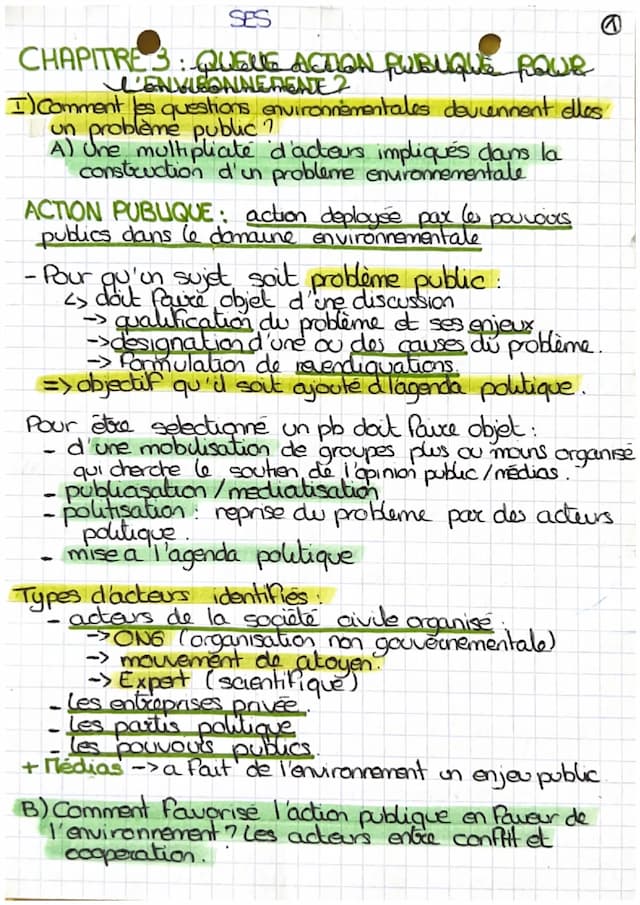 SES
1
CHAPITRE 3 : QUELLE ACTION PUBLIQUE POUR
L'ENVIRONNEMENT ?
I) Comment les questions environnementales deviennent elles
un problème public ?
A) Une multiplicité d'acteurs impliqués dans la
construction d'un problème environnementale
ACTION PUBLIQUE : action deployée par les pouvoirs
publics dans le domaine environnementale
- Pour qu'un sujet soit problème public :
↳ doit faire objet d'une discussion
-> qualification du problème et ses enjeux
-> designation d'une ou des causes du problème.
-> formulation de revendiquations.
=> objectif qu'il soit ajouté à l'agenda politique.
Pour être selectionné un pb doit faire objet :
- d'une mobilisation de groupes plus ou moins organisé
qui cherche le soutien de l'opinion public / médias.
- publicisation / mediatisation
- politisation : reprise du problème par des acteurs
politique.
- mise a l'agenda politique
Types d'acteurs identifiés :
- acteurs de la société civile organisé :
-> ONG (organisation non gouvernementale)
-> mouvement de citoyen.
-> Expert (scientifique)
- Les entreprises privée.
- Les partis politique
- les pouvoirs publics.
+ Médias -> a fait de l'environnement un enjeu public
B) Comment favorisé l'action publique en faveur de
l'environnement ? Les acteurs entre conflit et
cooperation.